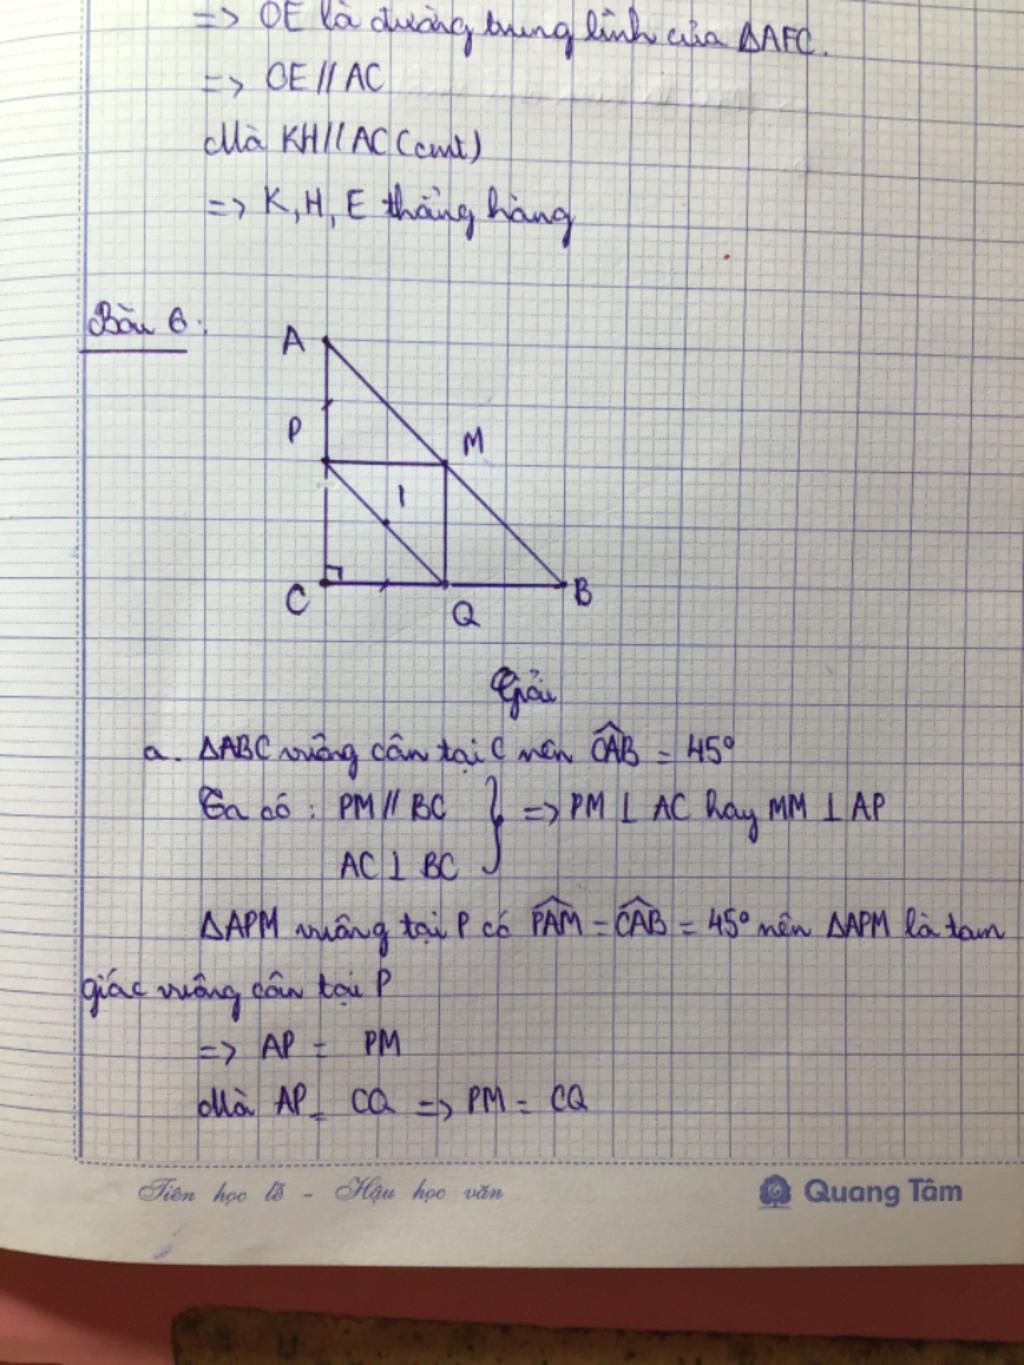 => OE là đường trung bình của ΔAFC.
=> OE // AC
Mà KH // AC (cmt)
=> K, H, E thẳng hàng
Bài 6:
A
P
M
I
C
Q
B
Giải
a. ΔABC vuông cân tại C nên CAB = 45°
Ta có : PM // BC } => PM ⊥ AC hay MM ⊥ AP
AC ⊥ BC
ΔAPM vuông tại P có PAM = CAB = 45° nên ΔAPM là tam
giác vuông cân tại P
=> AP = PM
Mà AP = CQ => PM = CQ
Tiên học lễ - Hậu học văn
Quang Tâm